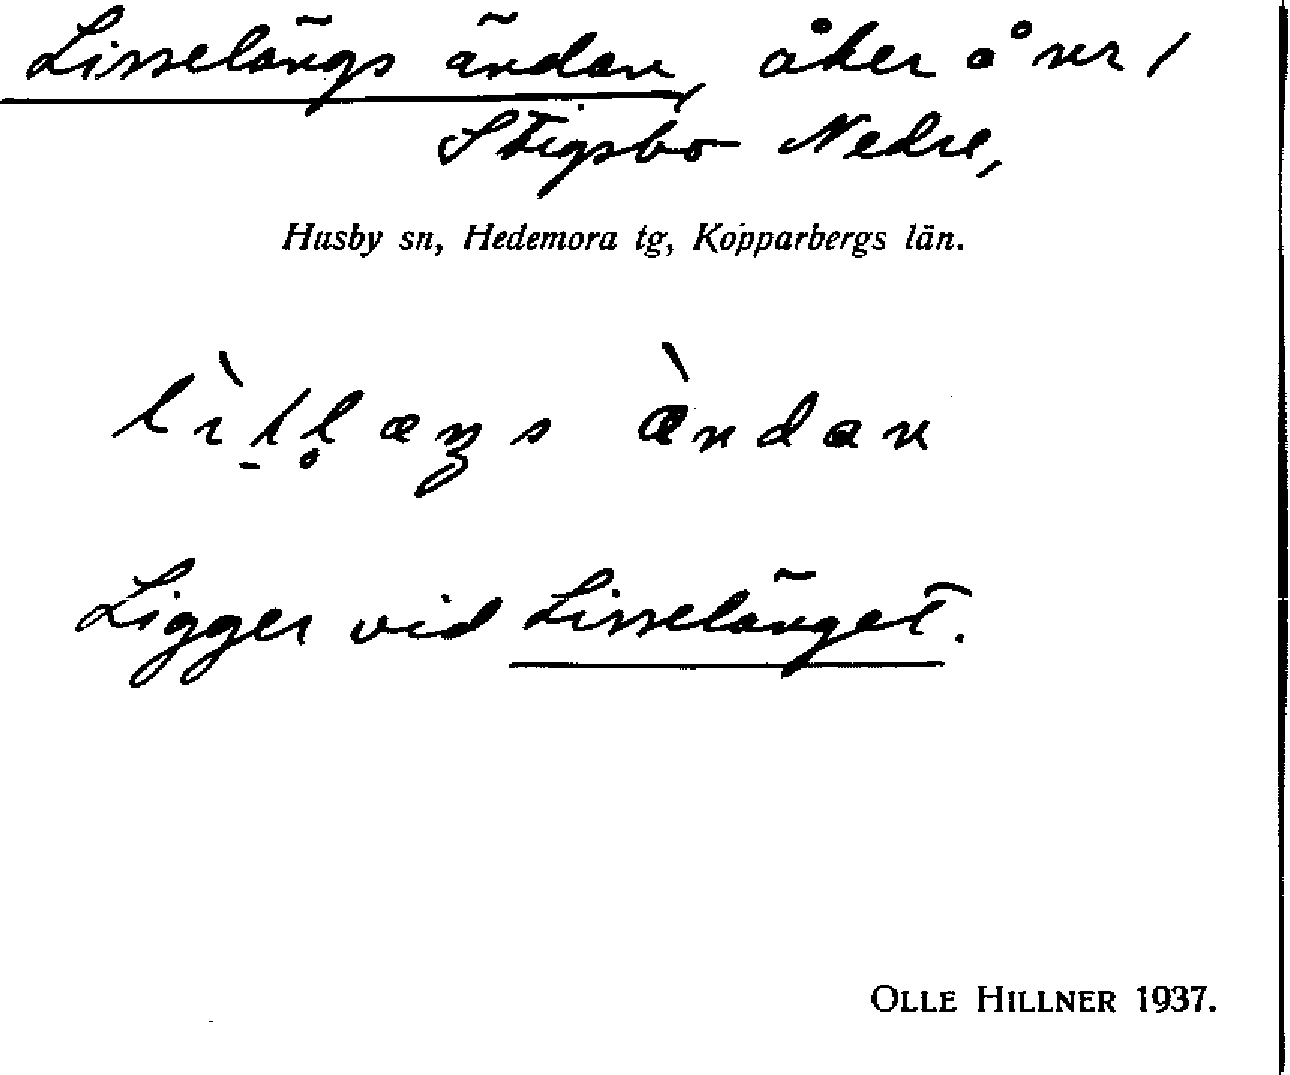 Lisselängs ändan, åker å nr 1
Stigsbo Nedre,
Husby sn, Hedemora tg, Kopparbergs län.
ändan
Ligger vid Lisselänget.
OLLE HILLNER 1937.